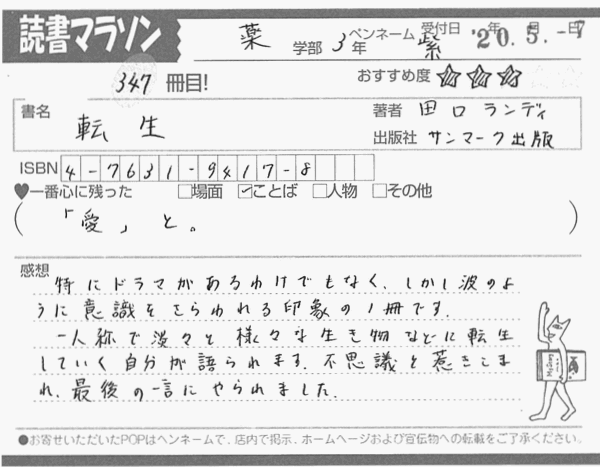 読書マラソン
薬 学部 3 年 ペンネーム 紫 受付日 '20.5.-7 年 月 日
347 冊目! おすすめ度 ☆☆☆
書名 転生
著者 田口ランディ
出版社 サンマーク出版
ISBN 4-7631-9417-8
♥一番心に残った □場面 ☑ことば □人物 □その他
(「愛」と。)
感想
特にドラマがあるわけでもなく、しかし波のよ
うに意識をさらわれる印象の1冊です。
一人称で淡々と様々な生き物などに転生
していく自分が語られます。不思議と惹きこま
れ、最後の一言にやられました。
●お寄せいただいたPOPはペンネームで、店内で掲示、ホームページおよび宣伝物への転載をご了承ください。